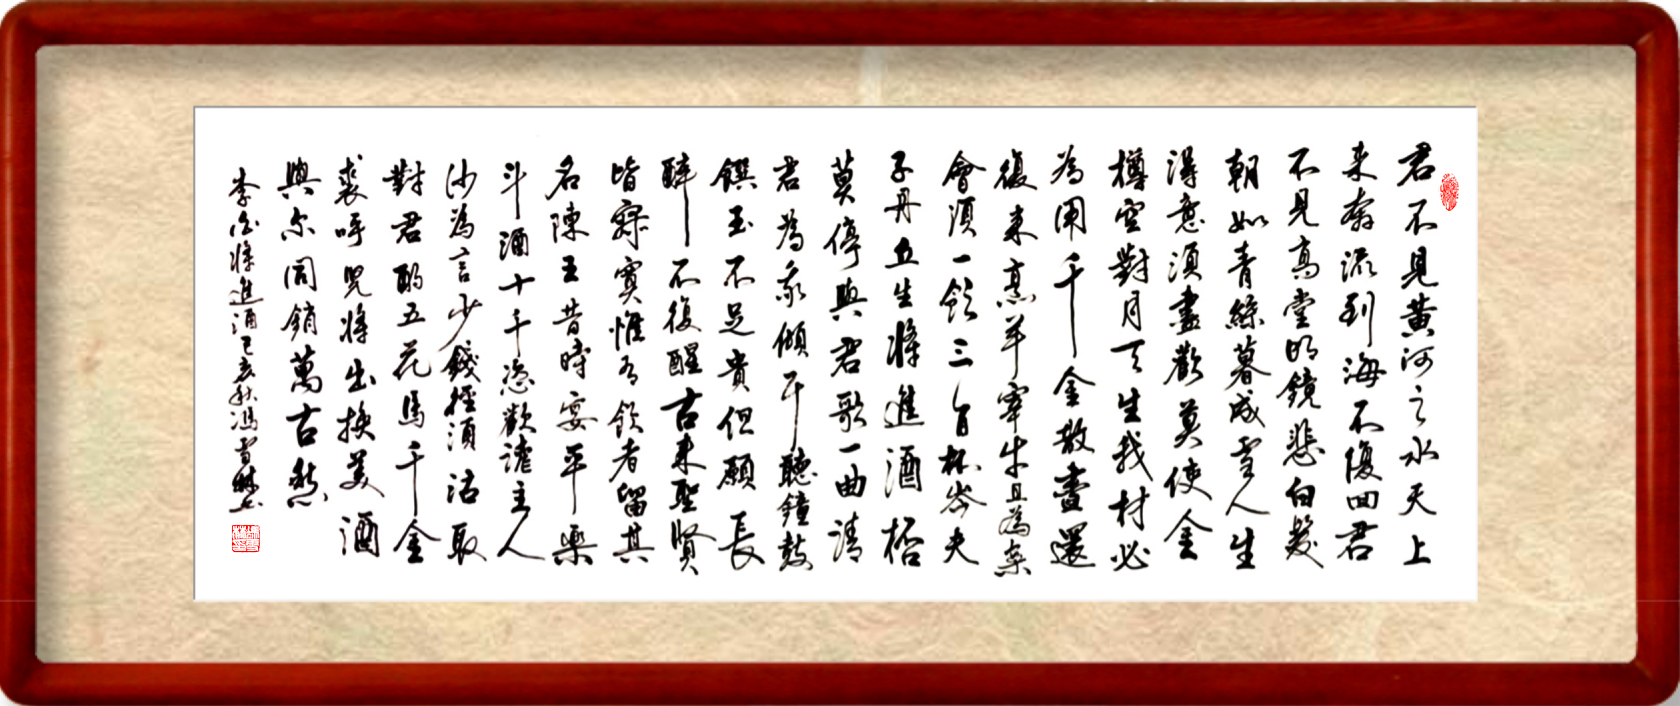 君不見黃河之水天上
来奔流到海不復回君
不見高堂明鏡悲白髮
朝如青絲暮成雪人生
得意須盡歡莫使金
樽空對月天生我材必
為用千金散盡還
復来烹羊宰牛且為樂
會須一飲三百杯岑夫
子丹丘生將進酒杯
莫停與君歌一曲請
君為我傾耳聽鐘鼓
饌玉不足貴但願長
醉不復醒古来聖賢
皆寂寞惟有飲者留其
名陳王昔時宴平樂
斗酒十千恣歡謔主人
何為言少錢徑須沽取
對君酌五花馬千金
裘呼兒將出換美酒
與尔同銷萬古愁
李白將進酒己亥秋馮雪林书